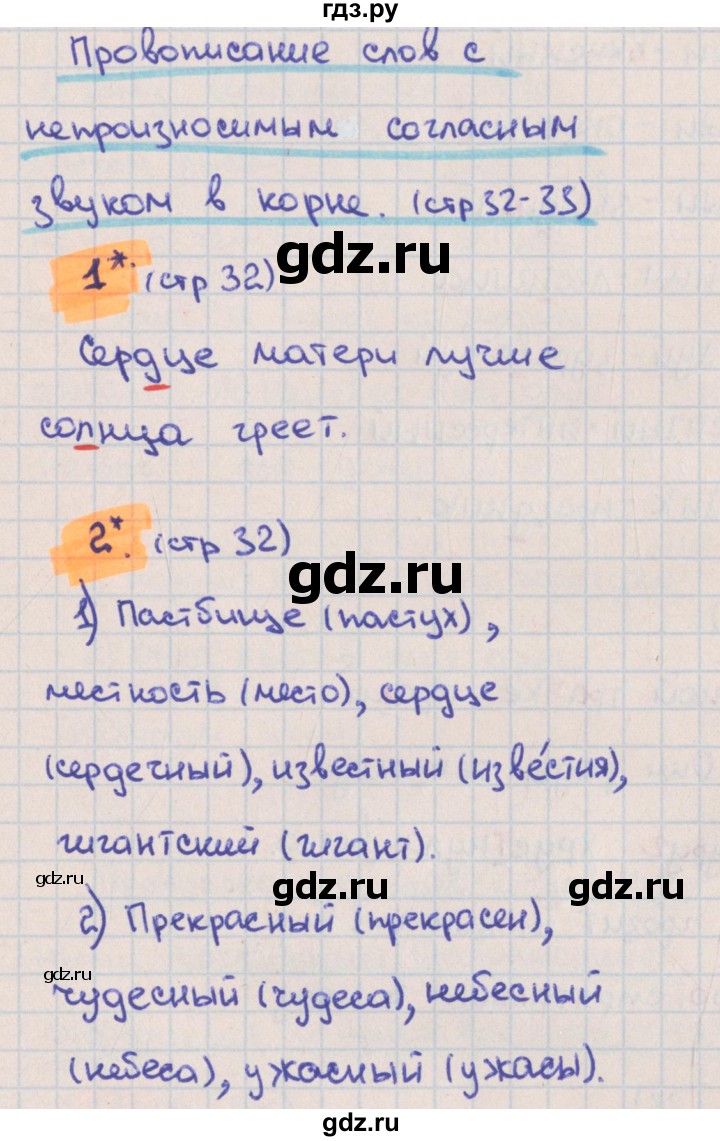 гдз.ру
Провописание слов с
непроизносимым согласным
звуком в корне. (стр 32-33)
gdz.ru
1*. (стр 32)
Сердце матери лучше
солнца греет.
2*. (стр 32)
gdz.ru
1) Пастбище (пастух),
местность (место), сердце
(сердечный), известный (изве́стия),
гигантский (гигант).
gdz.ru
gdz.ru
gdz.ru
2) Прекрасный (прекрасен),
gdz.ru
чудесный (чудеса), небесный
(небеса), ужасный (ужасы).
gdz.ru